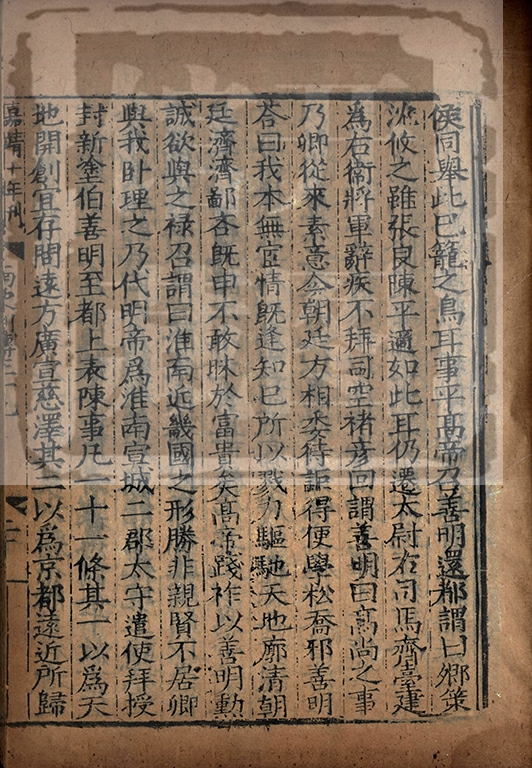 侯同舉此已籠之鳥耳事平髙帝召善明還都謂曰卿策
沈攸之雖張良陳平適如此耳仍遷太尉右司馬齊臺建
爲右衛將軍辭疾不拜司空褚彦回謂善明曰髙尚之事
乃卿從來素意今朝廷方相委待詎得便學松喬邪善明
荅曰我本無宦情旣逢知已所以戮力驅馳天地廓清朝
廷濟濟鄙吝旣申不敢昧於富貴矣髙帝踐祚以善明勳
誠欲與之禄召謂曰淮南近畿國之形勝非親賢不居卿
與我卧理之乃代明帝爲淮南宣城二郡太守遣使拜授
封新塗伯善明至都上表陳事凡一十一條其一以爲天
地開創宜存問遠方廣宣慈澤其二以爲京都遠近所歸
嘉靖十年刊